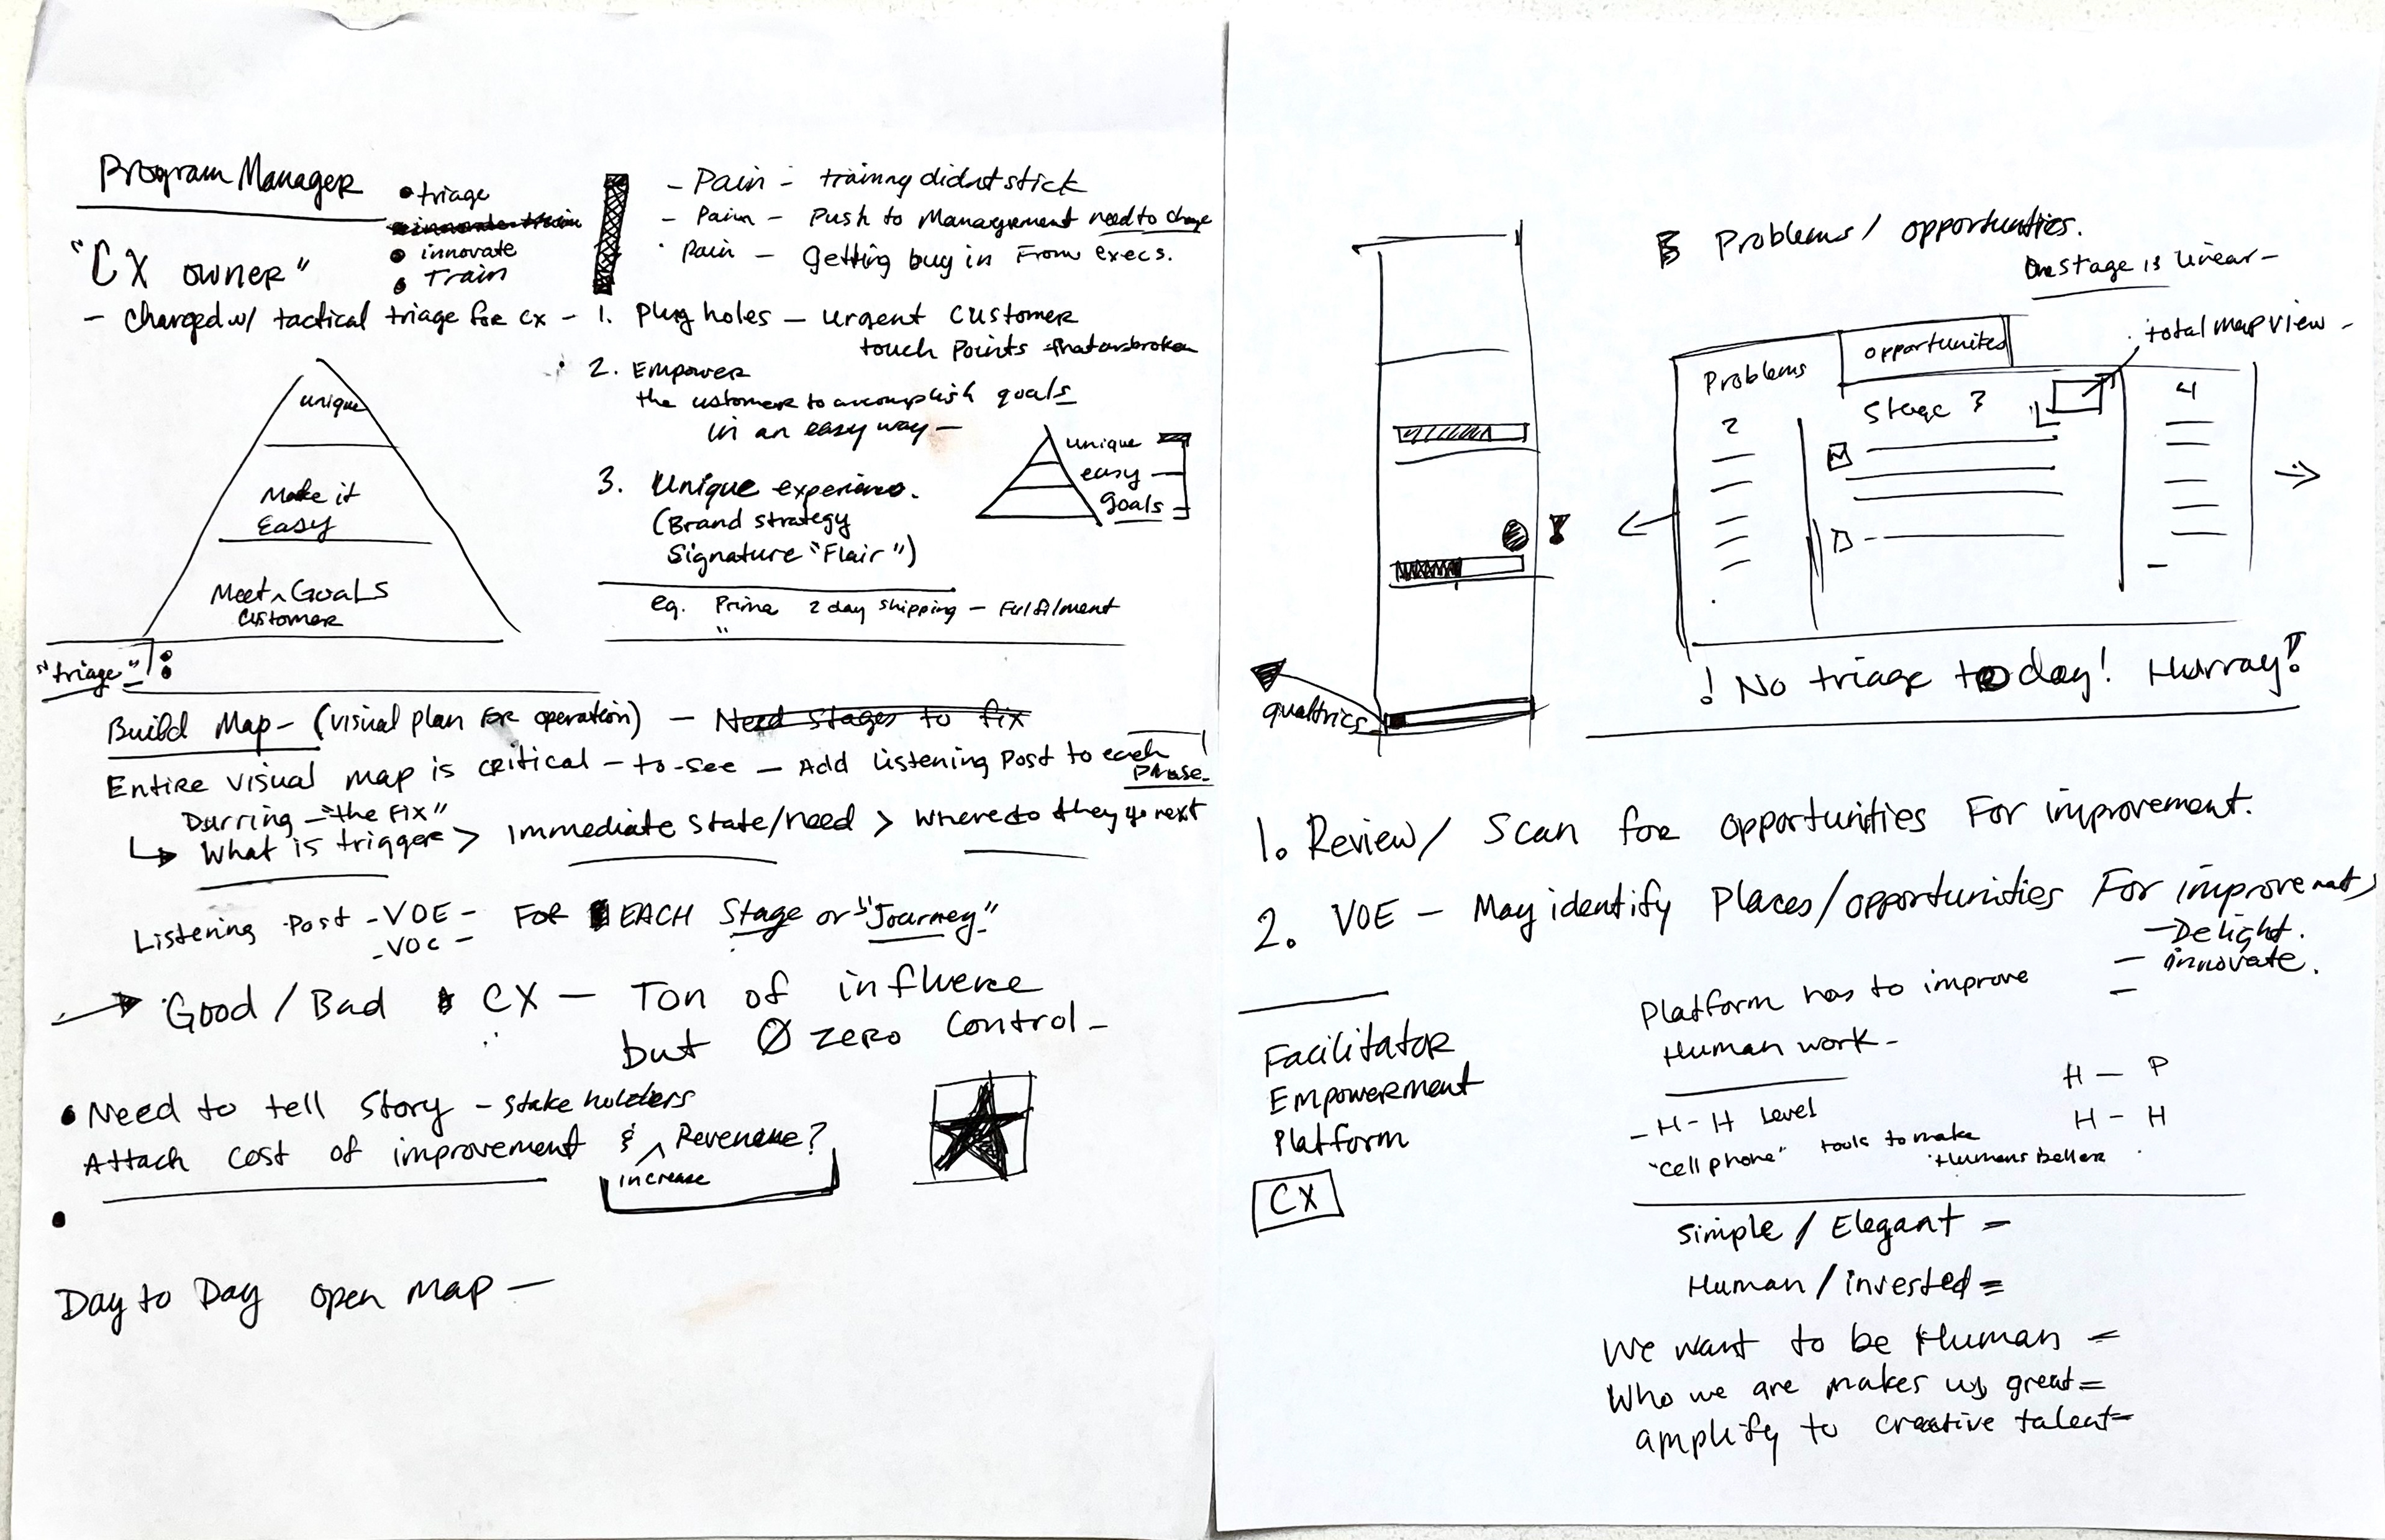 Program Manager
• triage
• innovate
• Train
"CX owner"
- Pain - training didnt stick
- Pain - Push to Management need to change
· Pain - Getting buy in From execs.
- Charged w/ tactical triage for CX - 1. Plug holes - urgent customer
touch Points that are broken
2. Empower
the customer to accomplish goals
in an easy way -
3. Unique experience.
(Brand strategy
Signature "Flair")
unique
easy
goals
eg. Prime 2 day shipping - Fulfilment
"
unique
Make it
Easy
Meet ^ Goals
Customer
"triage" :
Build Map - (visual plan for operation) - Need stages to fix
Entire visual map is critical - to-see - Add Listening Post to each
Phase -
Durring - "the Fix"
↳ What is trigger > Immediate state/need > where do they go next
Listening Post - VOE - For EACH Stage or "Journey"
- VOC -
→ Good / Bad CX - Ton of influence
but Ø zero control -
• Need to tell Story - stake holders
Attach cost of improvement & ^ Revenue?
increase
•
Day to Day open map -
Problems / opportunities.
One stage is linear -
total map view -
Problems
opportunites
2
Stage 3
4
qualtrics
! No triage today! Hurray!!
1. Review / Scan for opportunities For improvement.
2. VOE - May identify Places/opportunities For improvement,
- Delight.
- innovate.
-
Facilitator
Empowerment
Platform
CX
Platform has to improve
Human work -
H - P
H - H
- H-H Level
"cell phone" tools to make
Humans better
Simple / Elegant =
Human / invested =
We want to be Human =
Who we are makes us great =
amplify to creative talent -